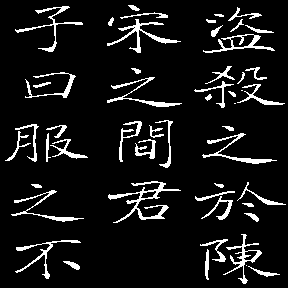 盜殺之於陳
宋之間君
子曰服之不